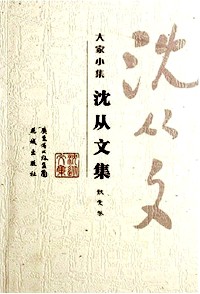 沈从文
大家小集
沈从文集
散文卷
广东省出版集团
花城出版社